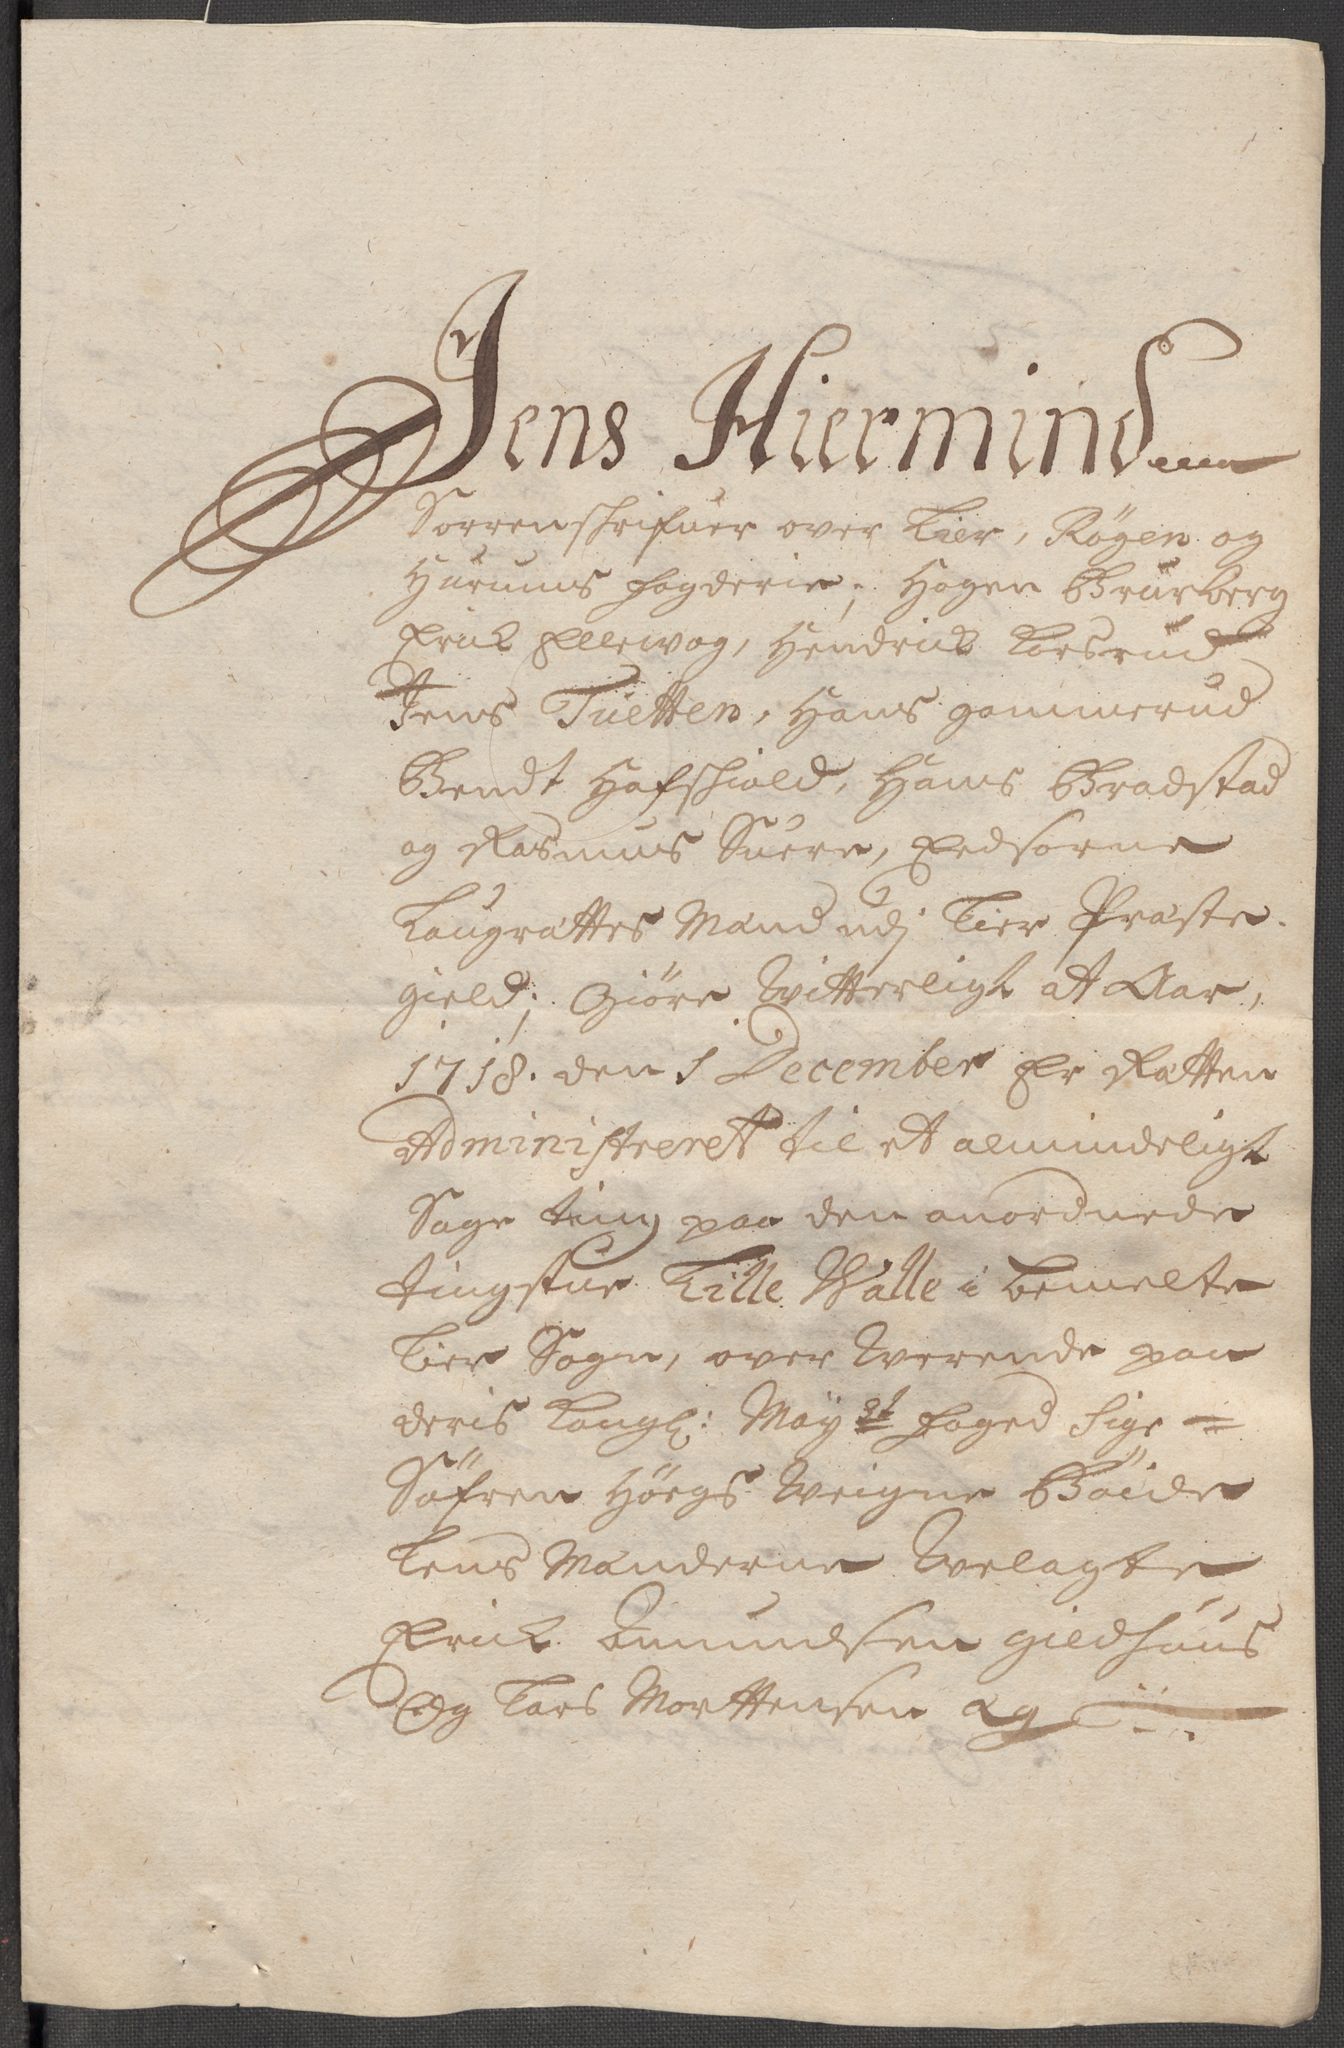 Jens Hiermind
Sorrenschrifuer over Lier, Røgen og
Hurums fogderie, Hagen Brurberg
Erick Ellewog, Hendrick Larsrud
Jens Tuetten, Hans gommerud
Bendt Hafschiold, Hans Bradstad
og Rasmus Suere, Eedsorne
Laugrættes Mænd udj Lier Præste-
gield; Giöre Witterligt at Aar,
1718. den 1 December Er Rætten
Administreret til et almindeligt
Sage ting paa den anordnede
tingstue Lille Walle i bemelte
Lier Sogn, over Werende paa
deris Kongl: Mayst foged Sigr =
Söfren Höegs Weigne Böide
Lens Mænderne Welagte
Erick Amundsen gieldhuus
Og Lars Morttensen ag